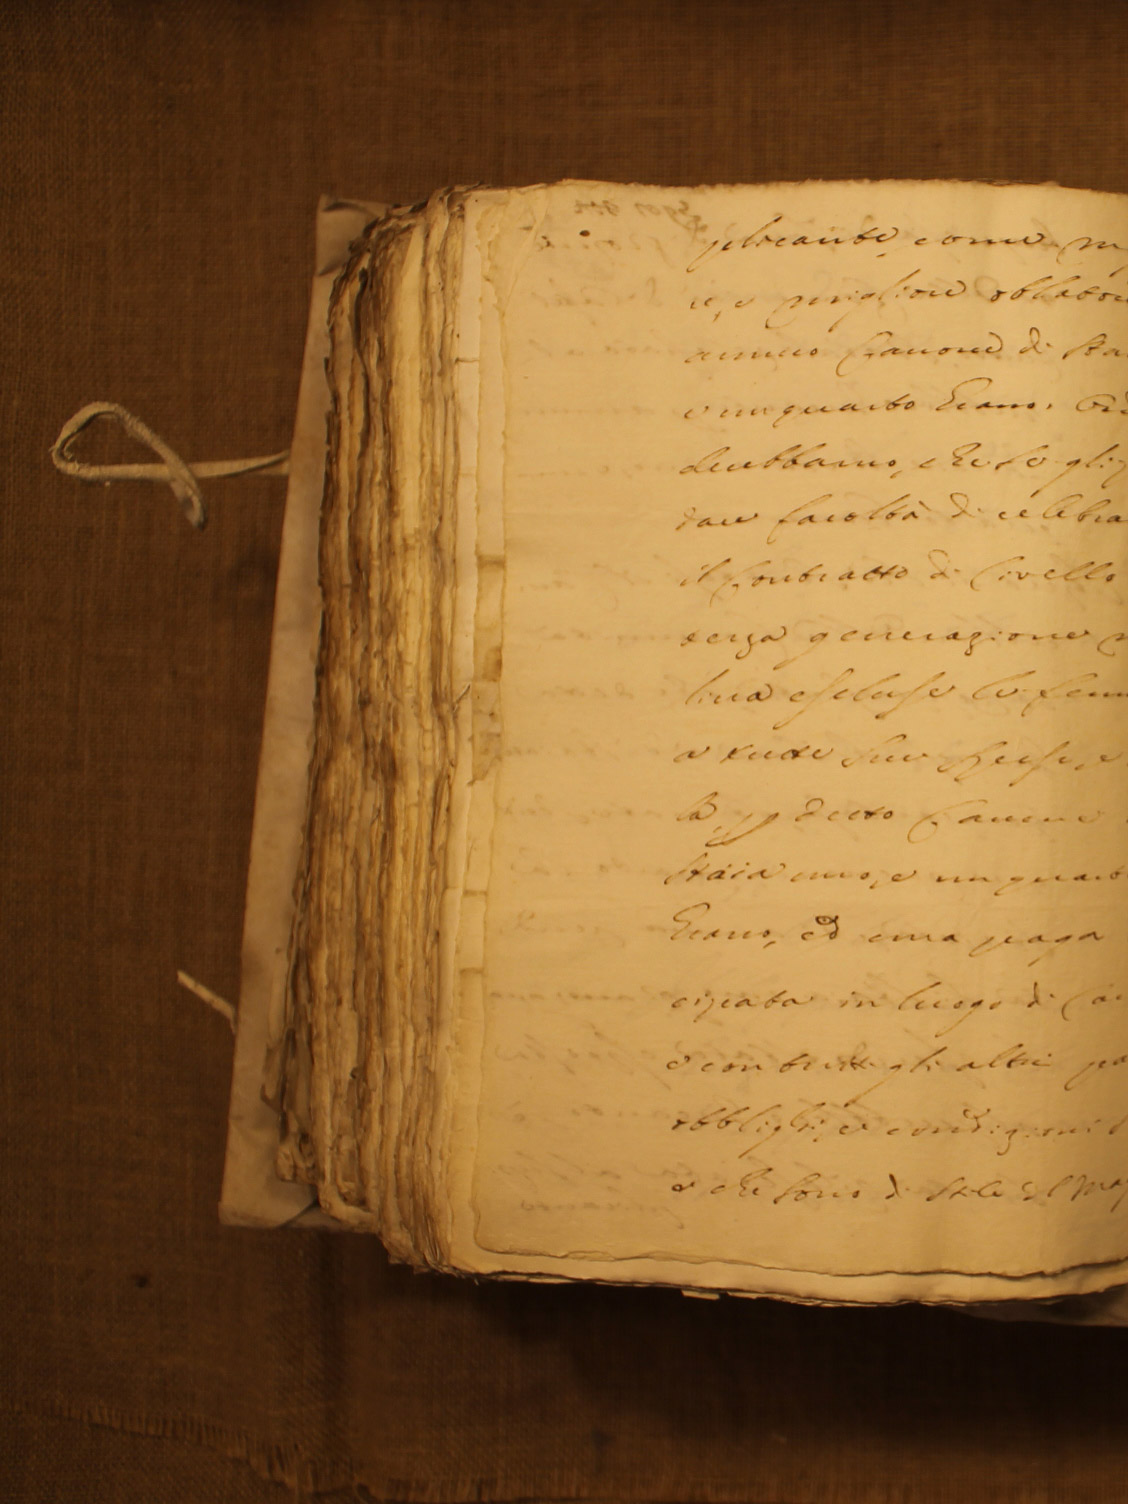 plicante, come m
re, e migliore oblatore
annuo Canone di Sta
e un quarto Grano. Cre
derebbamo, che se gli p
dare facoltà di celebra
il Contratto di Livello
terza generazione m
lina escluse le fem
a tutte sue spese, e
la pp detto Canone
Staia uno, e un quart
Grano, ed una paga
cipata in luogo di Ca
e con tutti gli altri pa
obblighi, e condizioni
e che sono di stile del Mag